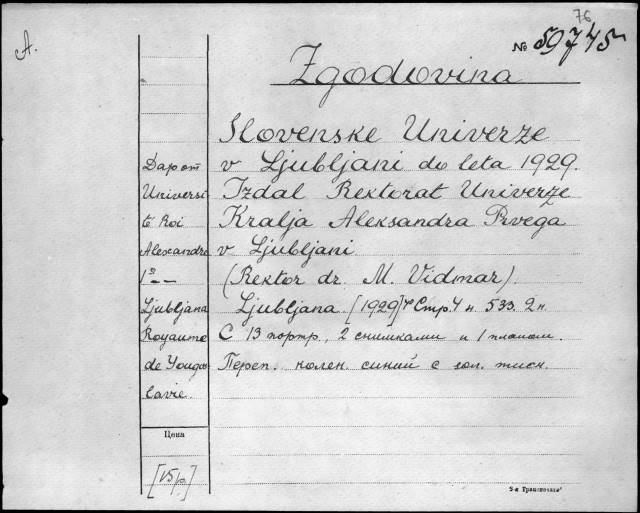 76
A.
№ 59745
Zgodovina
Slovenske Univerze
v Ljubljani do leta 1929.
Izdal Rektorat Univerze
Kralja Aleksandra Prvega
v Ljubljani
(Rektor dr. M. Vidmar).
Ljubljana [1929] Стр. 4 н. 533. 2 н.
С 13 портр., 2 снимками и 1 планом.
Переп. колен. синий с зол. тисн.
Дар от
Universi
té Roi
Alexandre
1º --
Ljubljana
Royaume
de Yougos
lavie.
Цена
[15 р.]